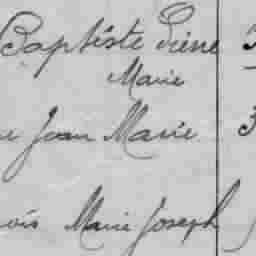 Baptiste Pierre
Marie
Jean Marie 3
Marie Joseph